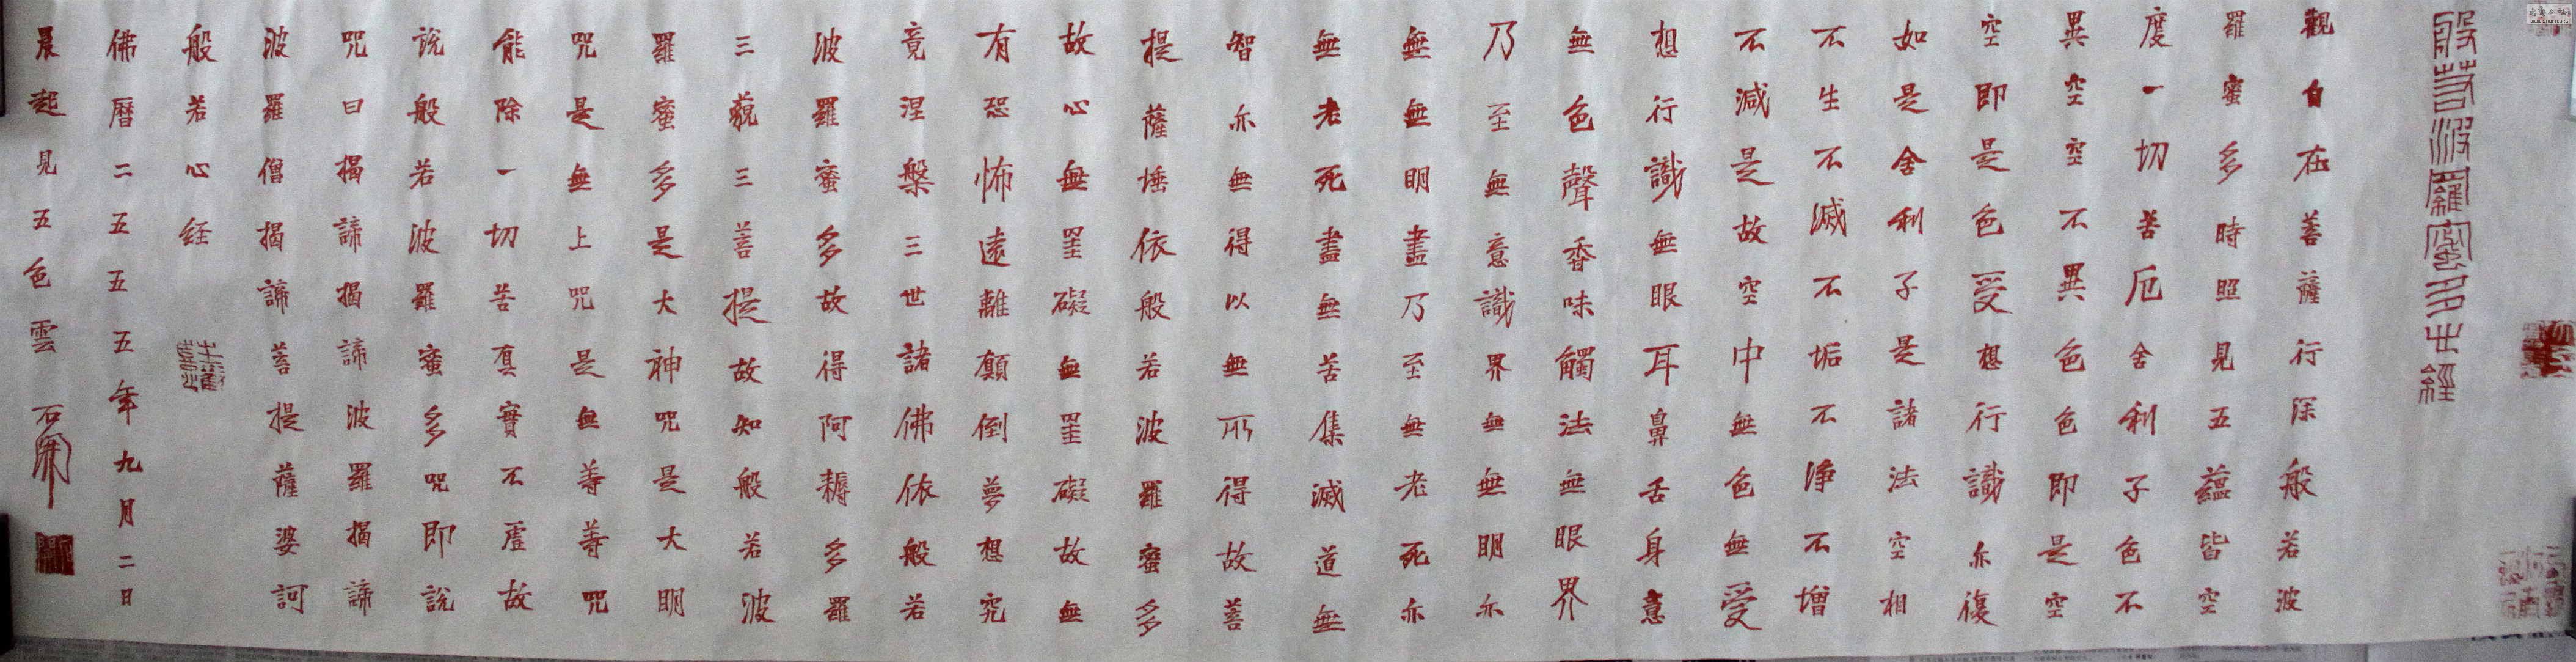 般若波羅蜜多心經
觀自在菩薩行深般若波
羅蜜多時照見五蘊皆空
度一切苦厄舍利子色不
異空空不異色色即是空
空即是色受想行識亦復
如是舍利子是諸法空相
不生不滅不垢不淨不增
不減是故空中無色無受
想行識無眼耳鼻舌身意
無色聲香味觸法無眼界
乃至無意識界無無明亦
無無明盡乃至無老死亦
無老死盡無苦集滅道無
智亦無得以無所得故菩
提薩埵依般若波羅蜜多
故心無罣礙無罣礙故無
有恐怖遠離顛倒夢想究
竟涅槃三世諸佛依般若
波羅蜜多故得阿耨多羅
三藐三菩提故知般若波
羅蜜多是大神咒是大明
咒是無上咒是無等等咒
能除一切苦真實不虛故
說般若波羅蜜多咒即說
咒曰揭諦揭諦波羅揭諦
波羅僧揭諦菩提薩婆訶
般若心経
佛曆二五五五年九月二日
晨起見五色雲 石開